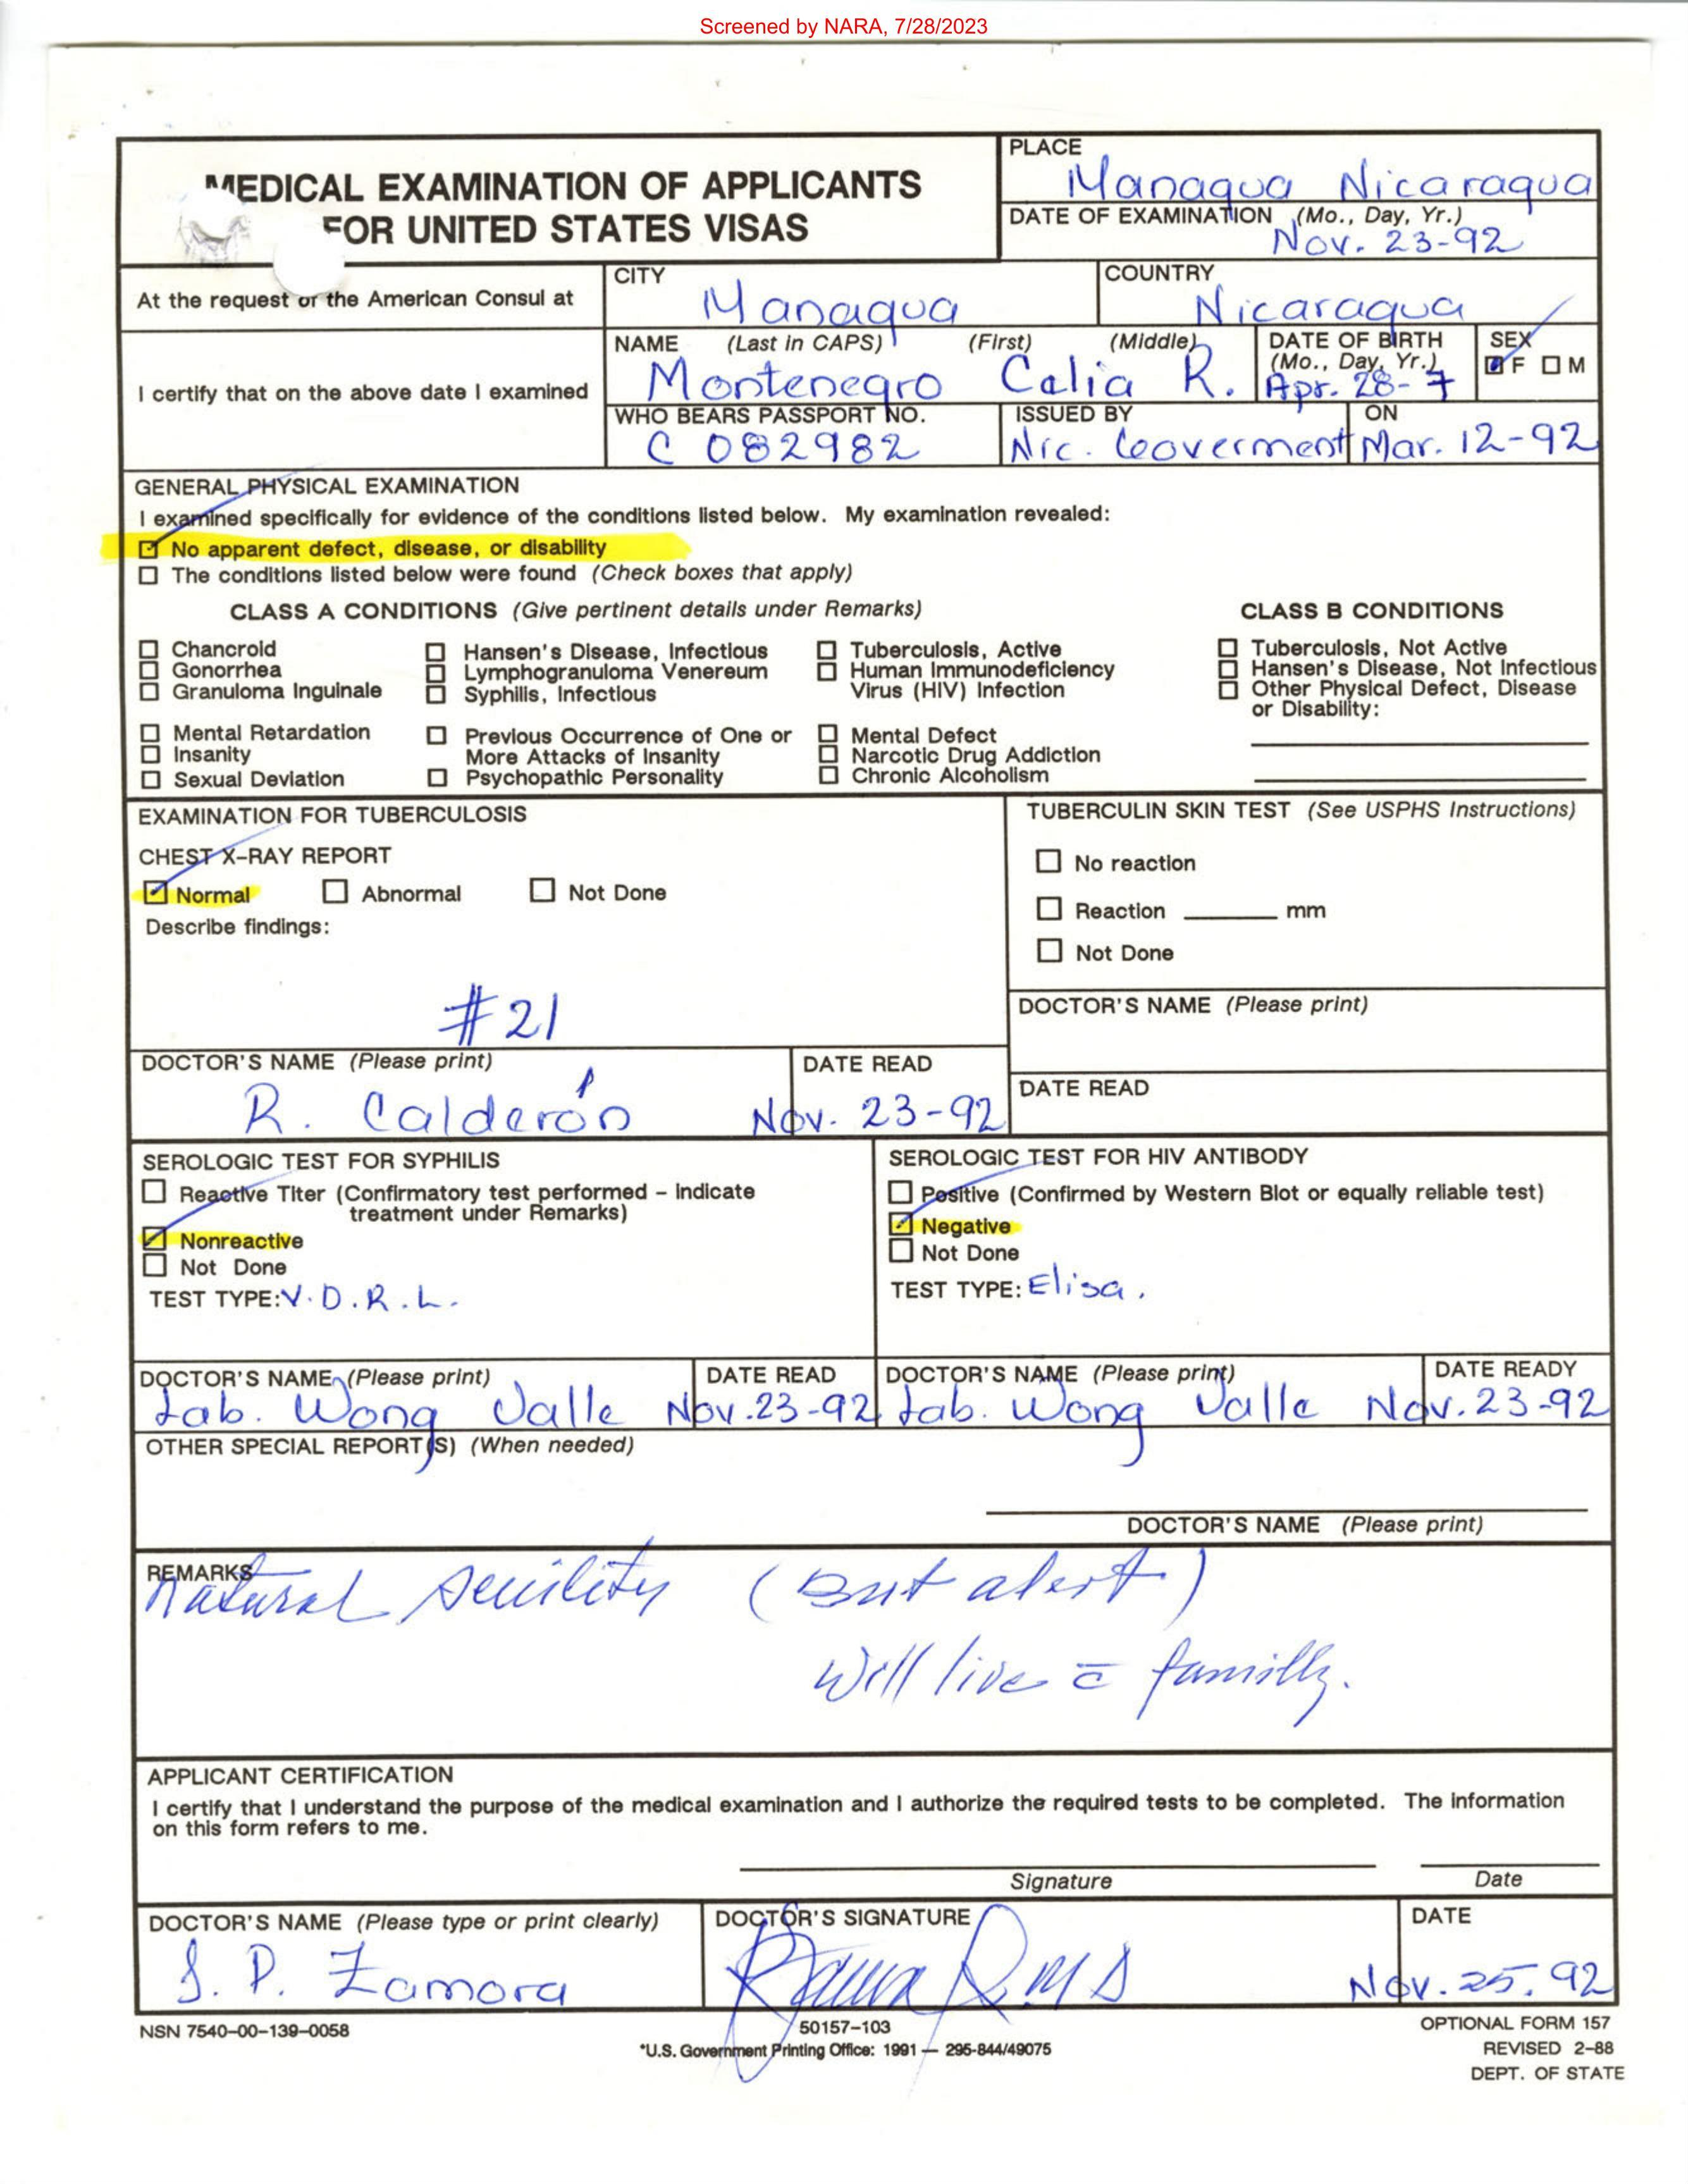 Screened by NARA, 7/28/2023
MEDICAL EXAMINATION OF APPLICANTS
FOR UNITED STATES VISAS
PLACE
Managua Nicaragua
DATE OF EXAMINATION (Mo., Day, Yr.)
Nov. 23-92
At the request of the American Consul at
CITY
Managua
COUNTRY
Nicaragua
I certify that on the above date I examined
NAME (Last in CAPS) (First) (Middle)
Montenegro Celia R.
DATE OF BIRTH
(Mo., Day, Yr.)
Apr. 28-7
SEX
F M
WHO BEARS PASSPORT NO.
C 082982
ISSUED BY
Nic. Goverment
ON
Mar. 12-92
GENERAL PHYSICAL EXAMINATION
I examined specifically for evidence of the conditions listed below. My examination revealed:
No apparent defect, disease, or disability
The conditions listed below were found (Check boxes that apply)
CLASS A CONDITIONS (Give pertinent details under Remarks)
Chancroid
Gonorrhea
Granuloma Inguinale
Hansen's Disease, Infectious
Lymphogranuloma Venereum
Syphilis, Infectious
Tuberculosis, Active
Human Immunodeficiency
Virus (HIV) Infection
Mental Retardation
Insanity
Sexual Deviation
Previous Occurrence of One or
More Attacks of Insanity
Psychopathic Personality
Mental Defect
Narcotic Drug Addiction
Chronic Alcoholism
CLASS B CONDITIONS
Tuberculosis, Not Active
Hansen's Disease, Not Infectious
Other Physical Defect, Disease
or Disability:
EXAMINATION FOR TUBERCULOSIS
CHEST X-RAY REPORT
Normal Abnormal Not Done
Describe findings:
#21
DOCTOR'S NAME (Please print)
R. Calderón
DATE READ
Nov. 23-92
TUBERCULIN SKIN TEST (See USPHS Instructions)
No reaction
Reaction mm
Not Done
DOCTOR'S NAME (Please print)
DATE READ
SEROLOGIC TEST FOR SYPHILIS
Reactive Titer (Confirmatory test performed - Indicate
treatment under Remarks)
Nonreactive
Not Done
TEST TYPE: V.D.R.L.
DOCTOR'S NAME (Please print)
Lab. Wong Valle
DATE READ
Nov. 23-92
SEROLOGIC TEST FOR HIV ANTIBODY
Positive (Confirmed by Western Blot or equally reliable test)
Negative
Not Done
TEST TYPE: Elisa.
DOCTOR'S NAME (Please print)
Lab. Wong Valle
DATE READY
Nov. 23-92
OTHER SPECIAL REPORT(S) (When needed)
DOCTOR'S NAME (Please print)
REMARKS
Natural senility (But alert)
Will live c̄ familly.
APPLICANT CERTIFICATION
I certify that I understand the purpose of the medical examination and I authorize the required tests to be completed. The information
on this form refers to me.
Signature Date
DOCTOR'S NAME (Please type or print clearly)
J. P. Zamora
DOCTOR'S SIGNATURE
DATE
Nov. 25. 92
NSN 7540-00-139-0058
50157-103
*U.S. Government Printing Office: 1991 — 295-844/49075
OPTIONAL FORM 157
REVISED 2-88
DEPT. OF STATE